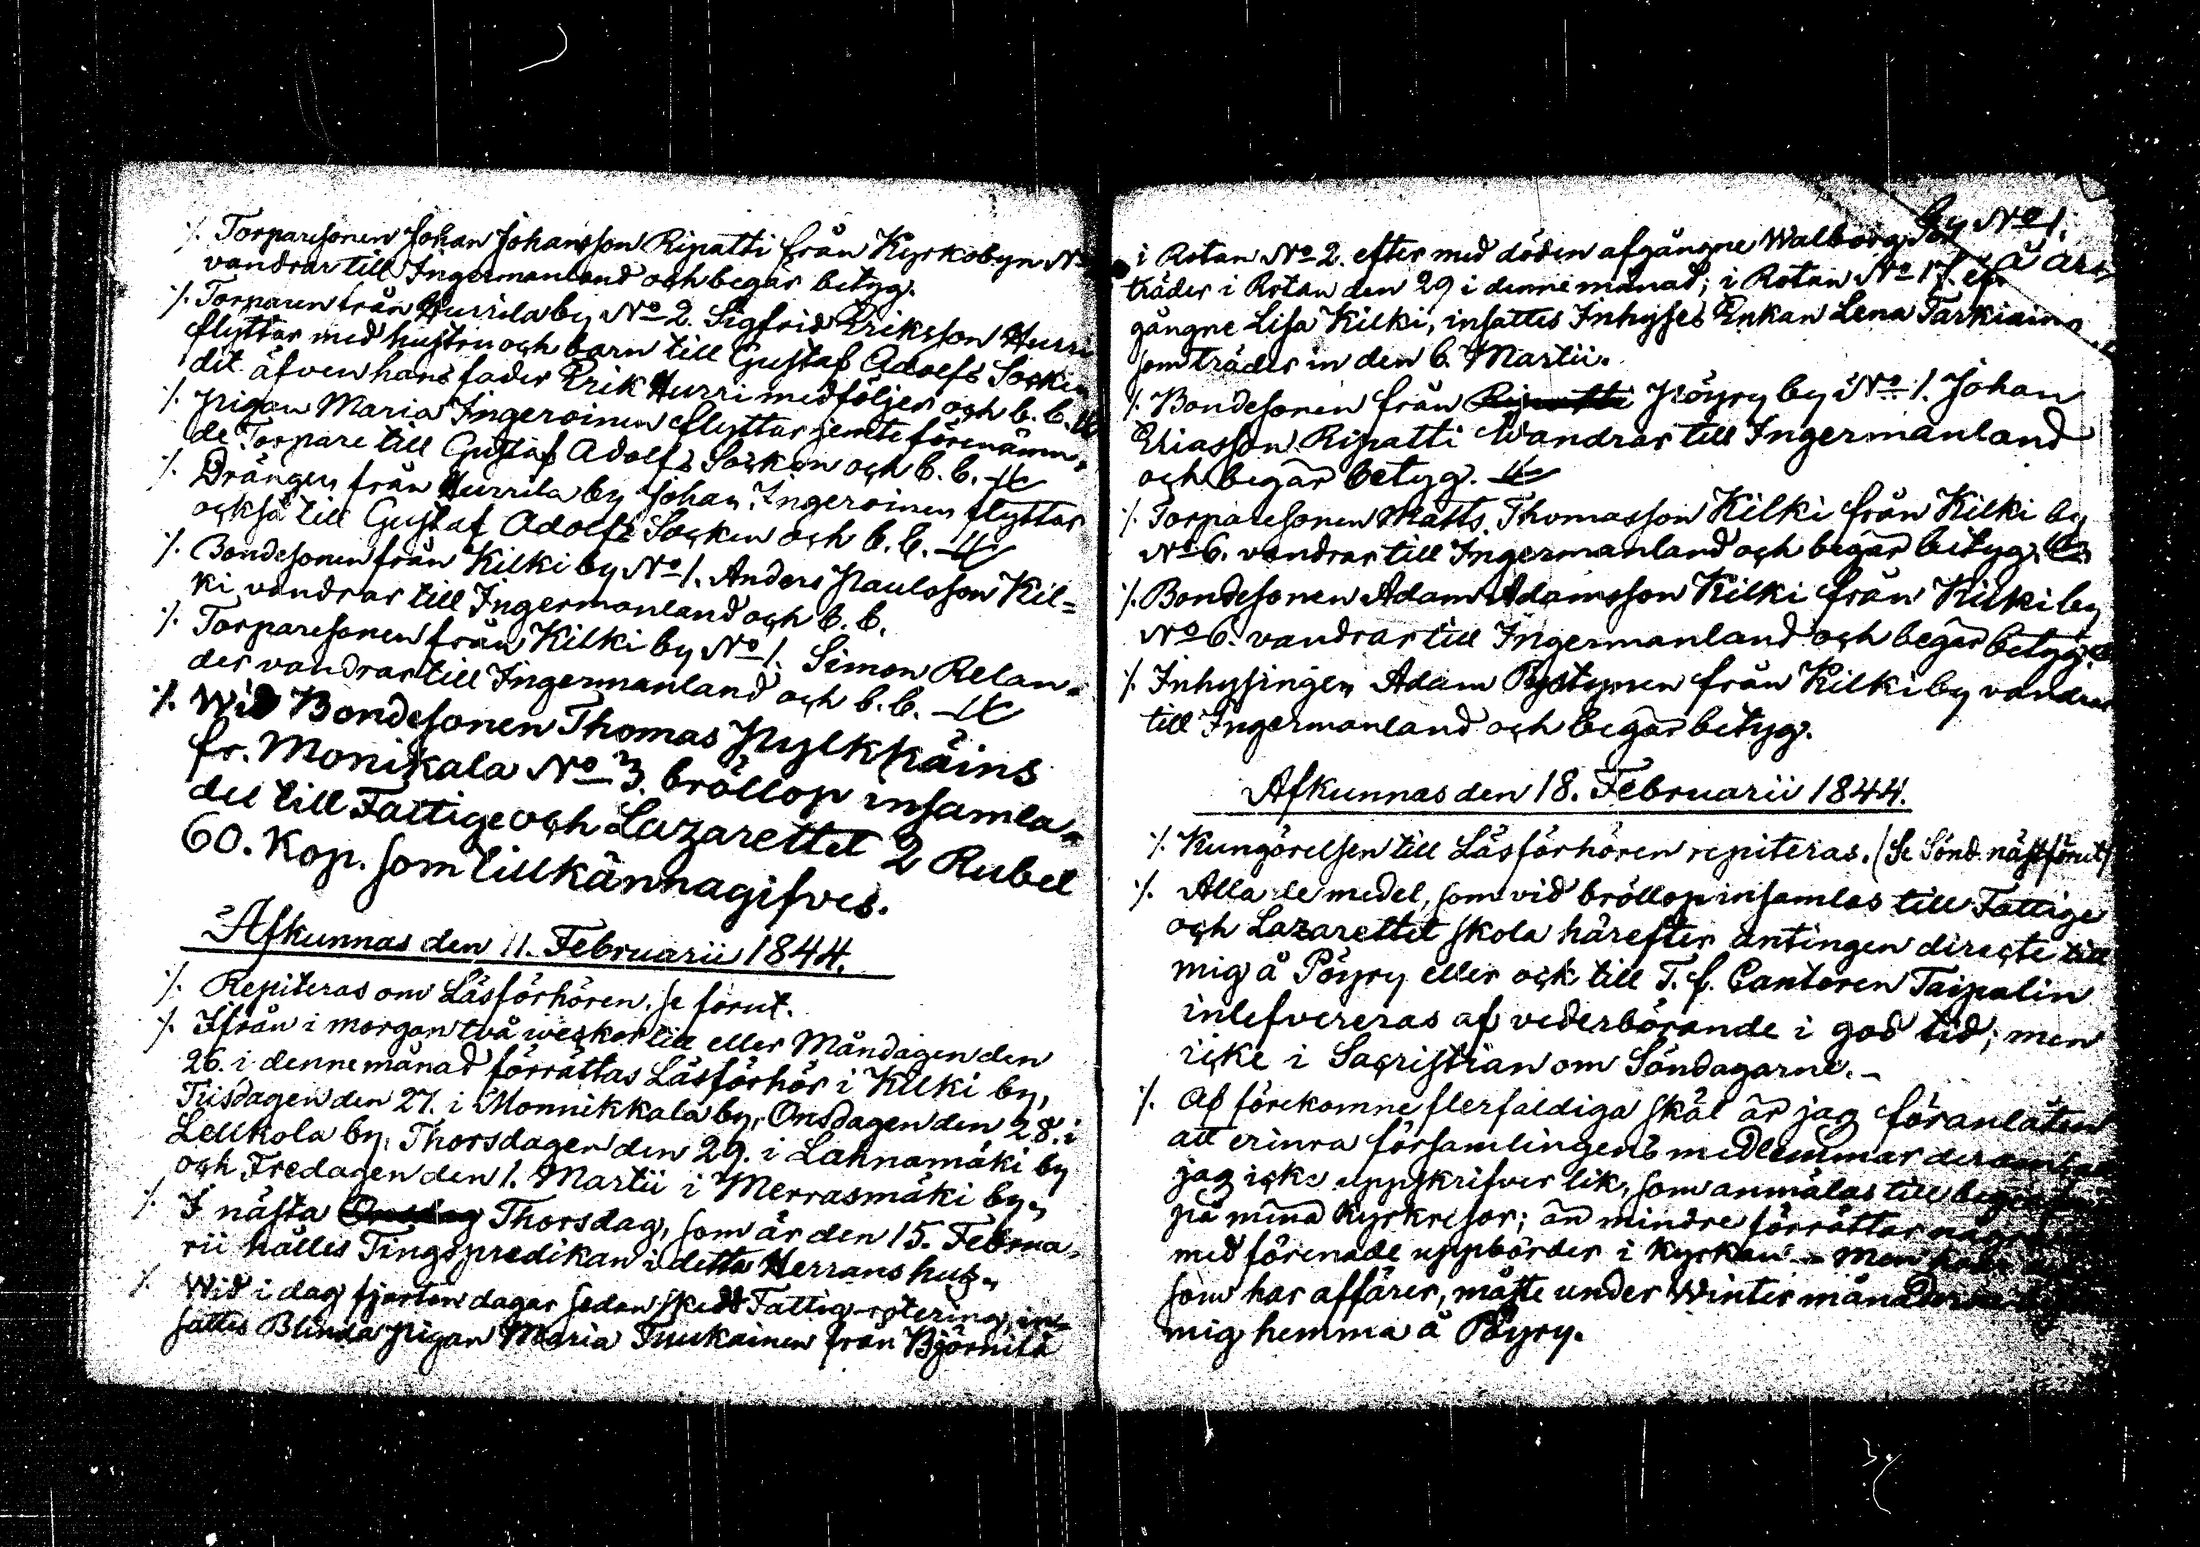 ⁒ Torparesonen Johan Johansson Ripatti från Kyrkobyn No
vandrar till Ingermanland och begär betyg.
⁒ Torparen från Hurrila by No 2. Sigfrid Eriksson Hurri
flyttar med hustru och barn till Gustaf Adolfs Socken
dit äfven hans fader Erik Hurri medföljer och b. b.
⁒ Pigan Maria Ingeroinen flyttar jemte förenämn-
de Torpare till Gustaf Adolfs Socken och b. b.
⁒ Drängen från Hurrila by Johan Ingeroinen flyttar
också till Gustaf Adolfs Socken och b. b.
⁒ Bondesonen från Kilki by No 1. Anders Paulsson Kil=
ki vandrar till Ingermanland och b. b.
⁒ Torparesonen från Kilki by No 1. Simon Relan-
der vandrar till Ingermanland och b. b.
⁒ Wid Bondesonen Thomas Pylkkäins
fr. Monikala No 3. bröllop insamla-
des till Fattige och Lazarettet 2 Rubel
60. Kop. som tillkännagifves.
Afkunnas den 11. Februarii 1844.
⁒ Repiteras om Läsförhören. se förut.
⁒ Ifrån i morgon två weckor till eller Måndagen den
26. i denne månad förrättas Läsförhör i Kilki by,
Tisdagen den 27. i Monnikkala by, Onsdagen den 28. i
Lellkola by, Thorsdagen den 29. i Lahnamäki by
och Fredagen den 1. Martii i Merrasmäki by.
⁒ I nästa Onsdag Thorsdag, som är den 15. Februa-
rii hålles Tingspredikan i detta Herrans hus.
⁒ Wid i dag fjorton dagar sedan skedd Fattig-rotering, in-
sattes Blinda Pigan Maria Tuukainen från Björnilä
by No 1.
i Rotan No 2. efter med döden afgångne Walborg
träder i Rotan den 29 i denne månad; i Rotan No 17. ef.
gångne Lisa Kilki, insattes Inhyses Enkan Lena Tarkiain
som träder in den 6. Martii.
⁒ Bondesonen från Ripatti Pöyry by No 1. Johan
Eliasson Ripatti Wandrar till Ingermanland
och begär betyg.
⁒ Torparesonen Matts Thomasson Kilki från Kilki by
No 6. vandrar till Ingermanland och begär betyg.
⁒ Bondesonen Adam Adamsson Kilki från Kilki by
No 6. vandrar till Ingermanland och begär betyg.
⁒ Inhysingen Adam Pystynen från Kilki by vandrar
till Ingermanland och begär betyg.
Afkunnas den 18. Februarii 1844.
⁒ Kungörelsen till Läsförhören repiteras. (Se Sönd. näst förut)
⁒ Alla de medel, som vid bröllop insamlas till Fattige
och Lazarettet skola härefter antingen directe till
mig å Pöyry eller ock till T. f. Cantoren Taipalin
inlefvereras af vederbörande i god tid; men
icke i Sacristian om Söndagarne. -
⁒ Af förekomne flerfaldiga skäl är jag föranlåten
att erinra församlingens medlemmar
jag icke uppskrifver lik, som anmälas till
på mina Kyrkresor; än mindre förrättar
med förenade uppbörder i Kyrkan - Men
som har affärer, måste under Winter månaderne
mig hemma å Pöyry.